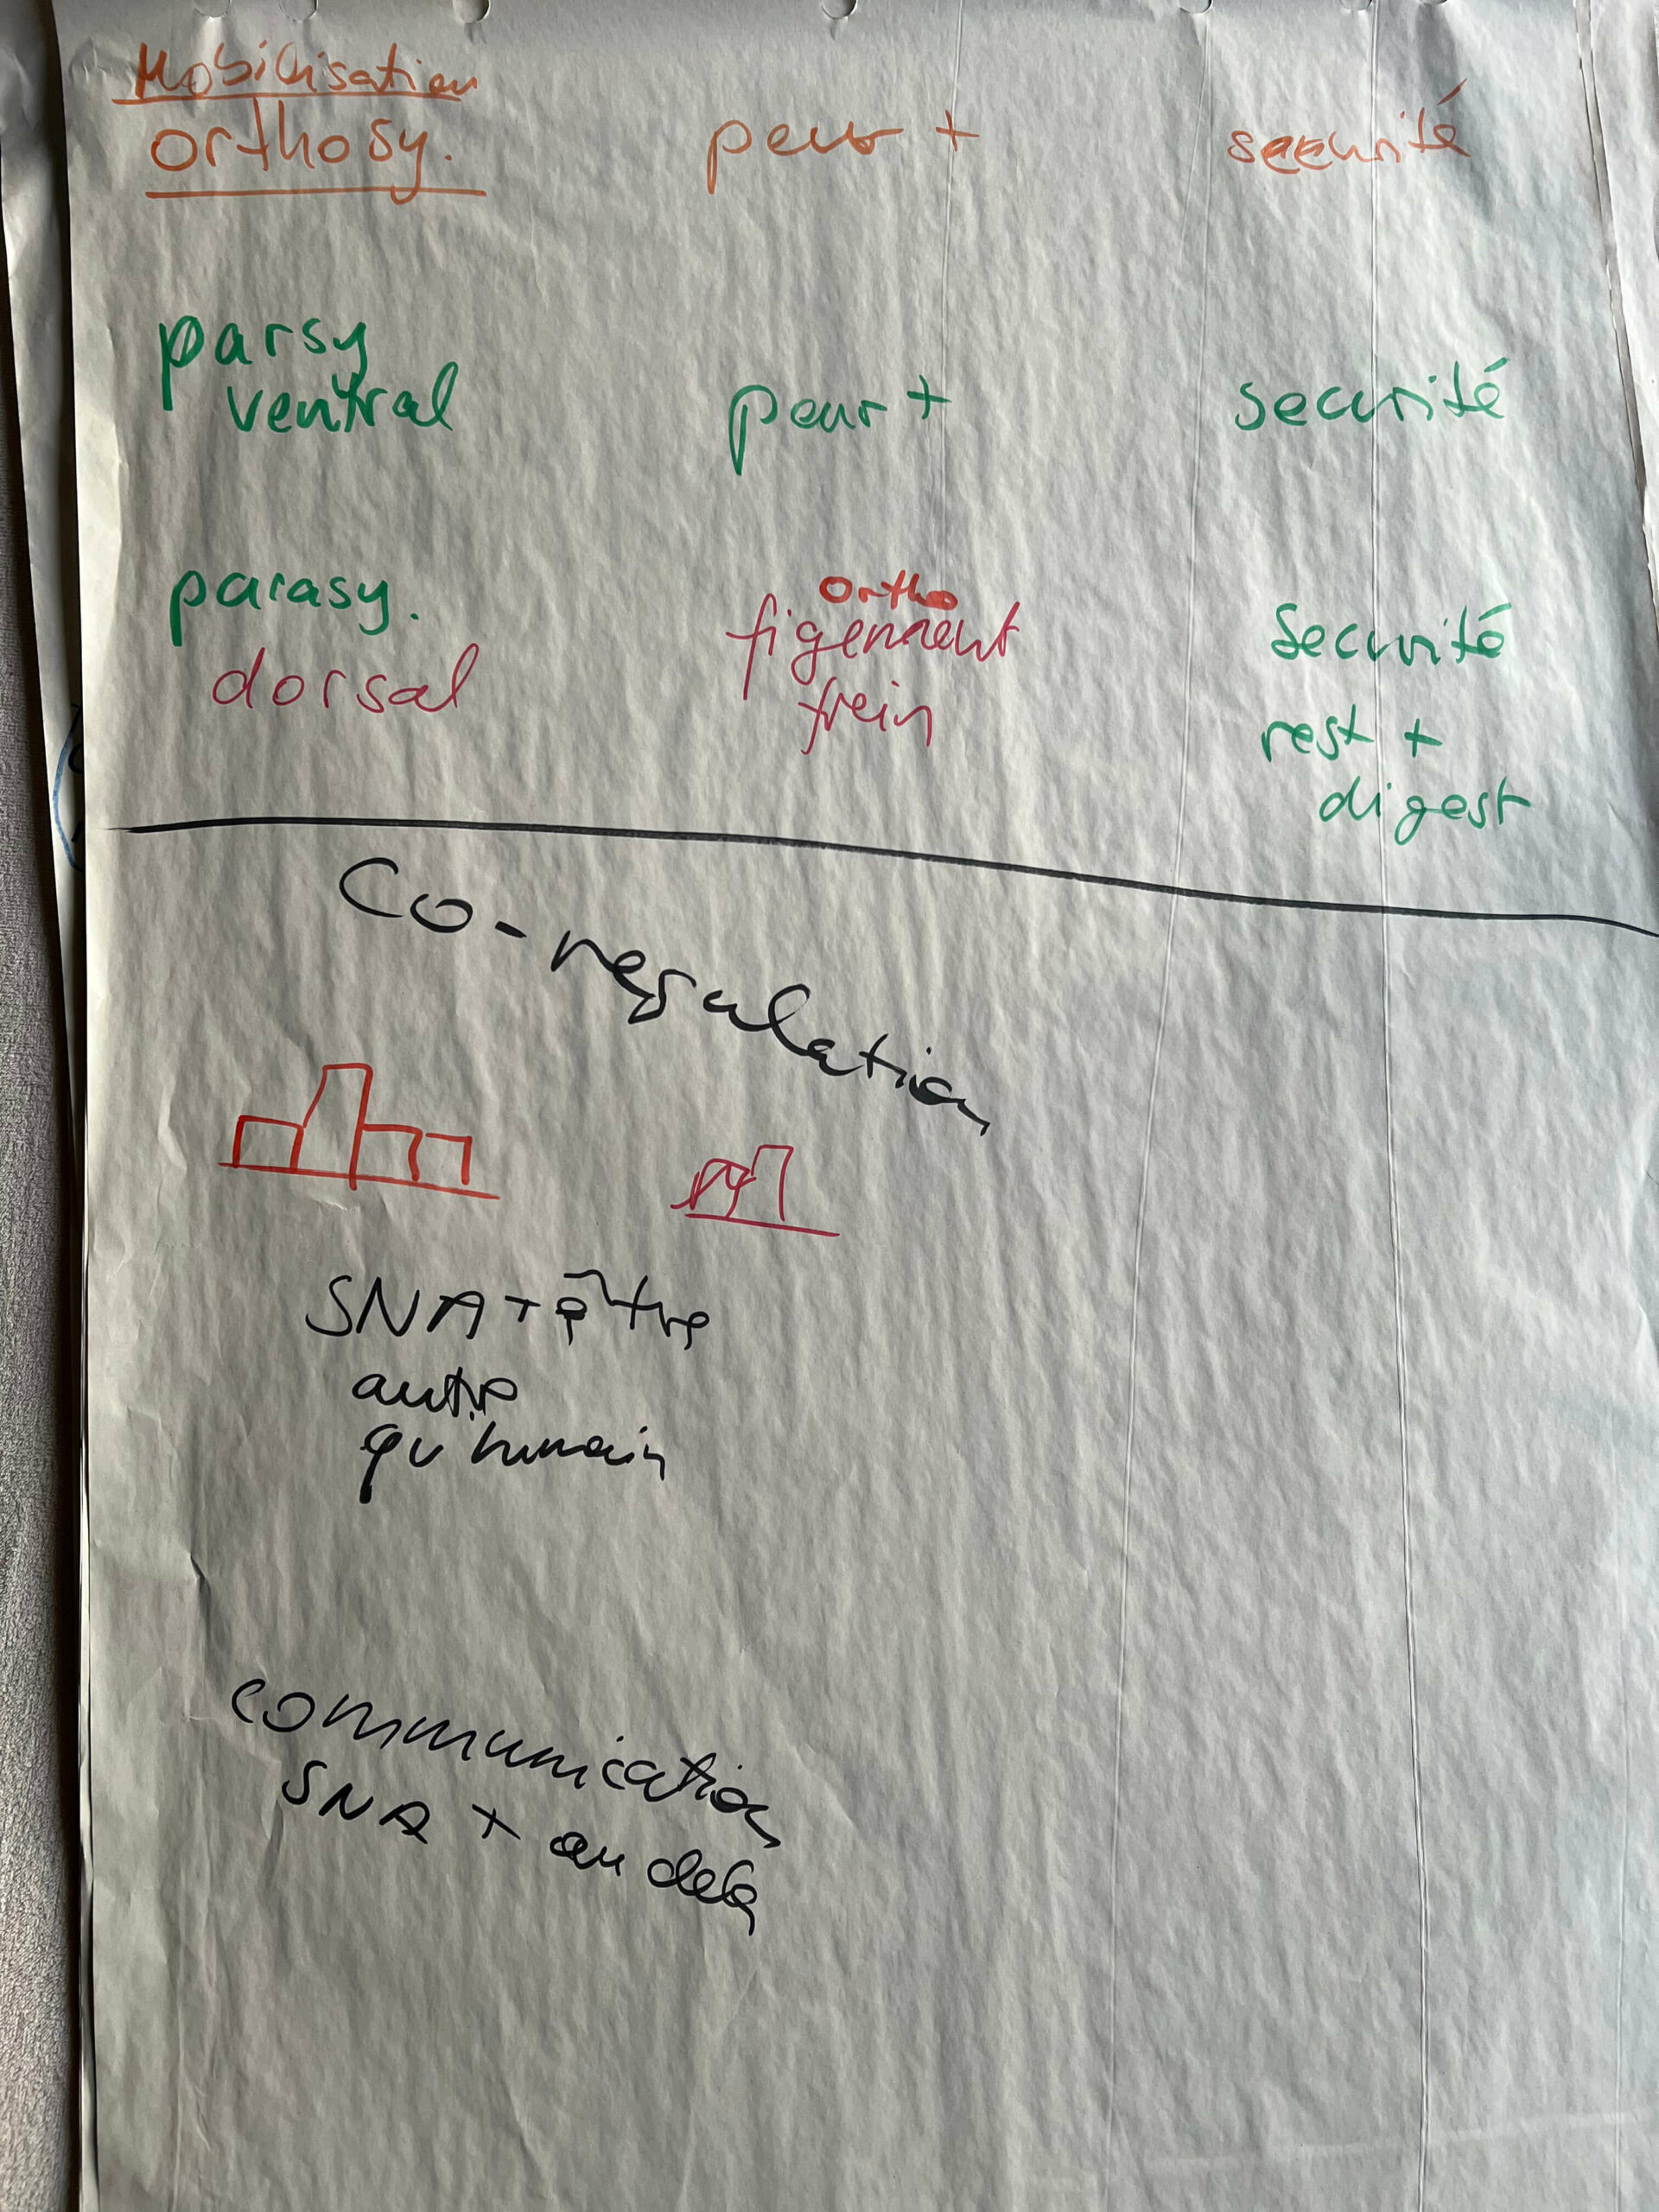 Mobilisation
orthosy. peur + sécurité
parsy
ventral peur + securité
parasy. ortho securité
dorsal figement
frein rest +
digest
Co-regulation
SNA + être
autre
qu humain
communication
SNA + au delà